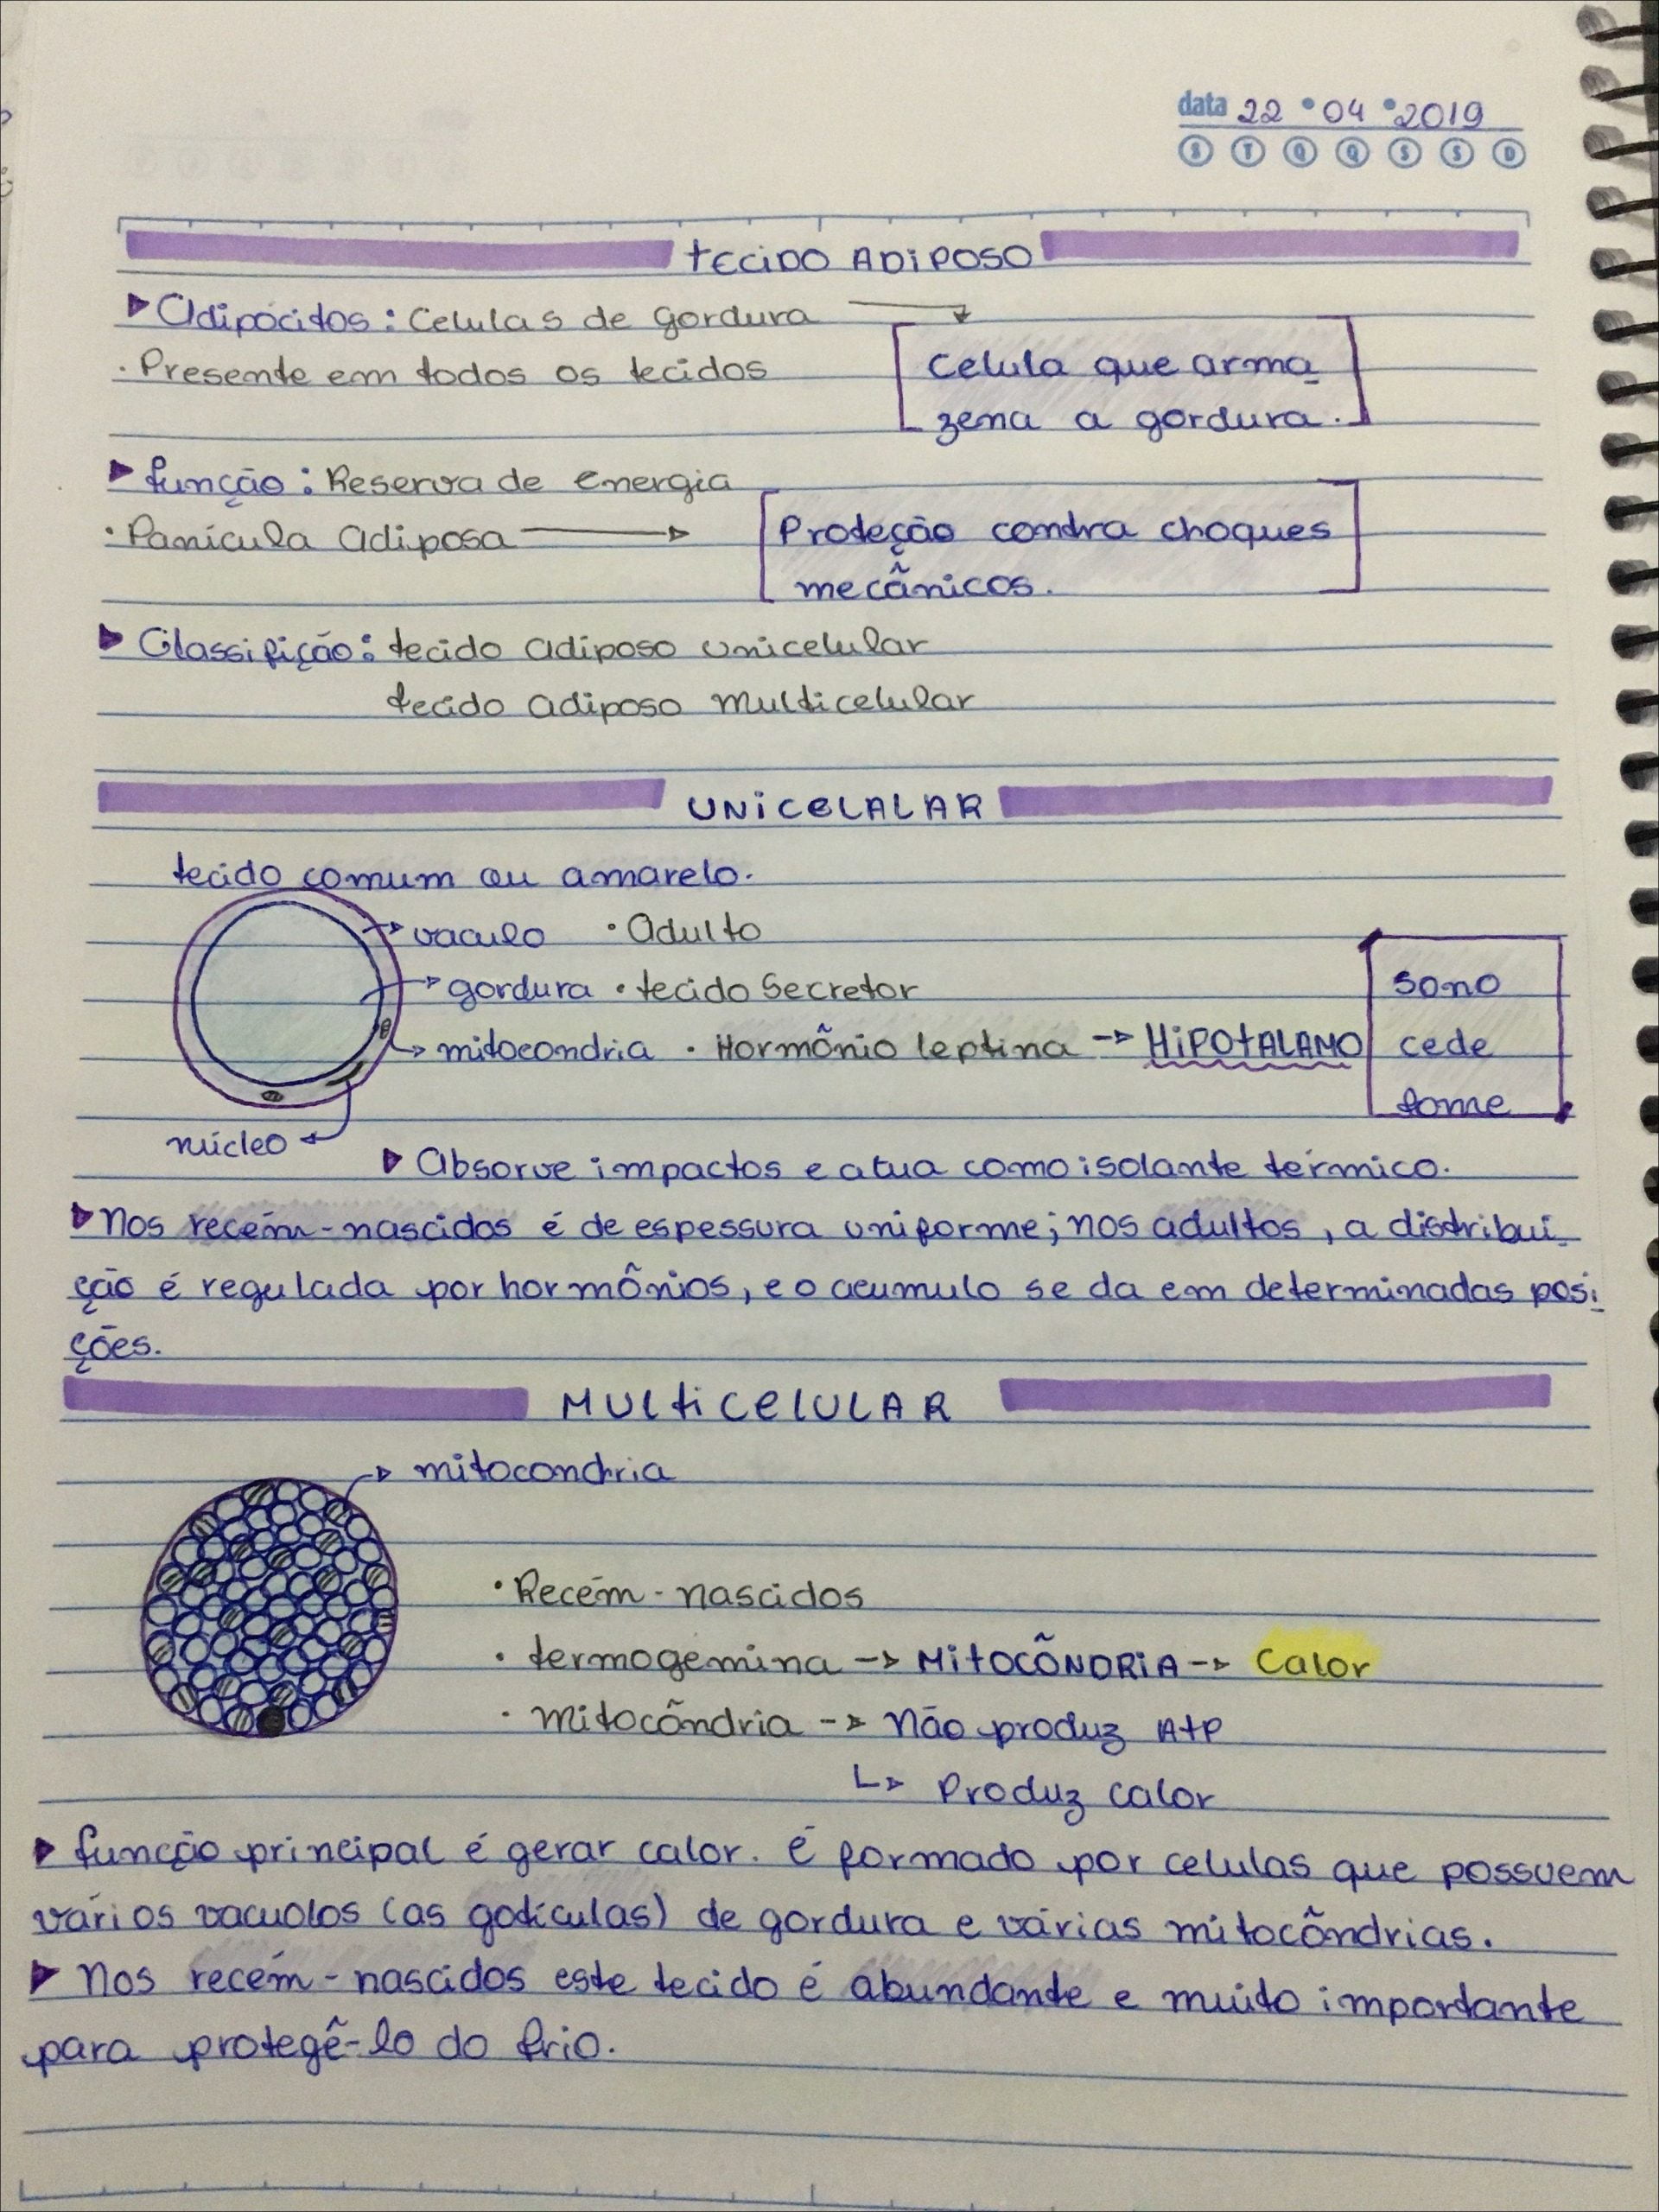 data 22 • 04 • 2019
S T Q Q S S D
tecido Adiposo
Adipócitos: Celulas de gordura
• Presente em todos os tecidos
Celula que arma
zena a gordura.
função: Reserva de energia
• Panícula Adiposa
Proteção contra choques
mecãnicos.
Classifição: tecido adiposo unicelular
tecido adiposo multicelular
UNICELALAR
tecido comum ou amarelo.
vaculo • Adulto
gordura • tecido Secretor
mitocondria • Hormõnio leptina → HIPOTALAMO
sono
cede
fome
núcleo
Absorve impactos e atua como isolante térmico.
Nos recém-nascidos é de espessura uniforme; nos adultos, a distribui
ção é regulada por hormônios, e o acumulo se da em determinadas posi
ções.
MULTICELULAR
mitocondria
• Recém-nascidos
• termogemina → MITOCÕNDRIA → Calor
• mitocõndria → Não produz ATP
↳ Produz calor
função principal é gerar calor. É formado por celulas que possuem
vários vacuolos (as gotículas) de gordura e várias mitocõndrias.
Nos recém-nascidos este tecido é abundante e muito importante
para protegê-lo do frio.